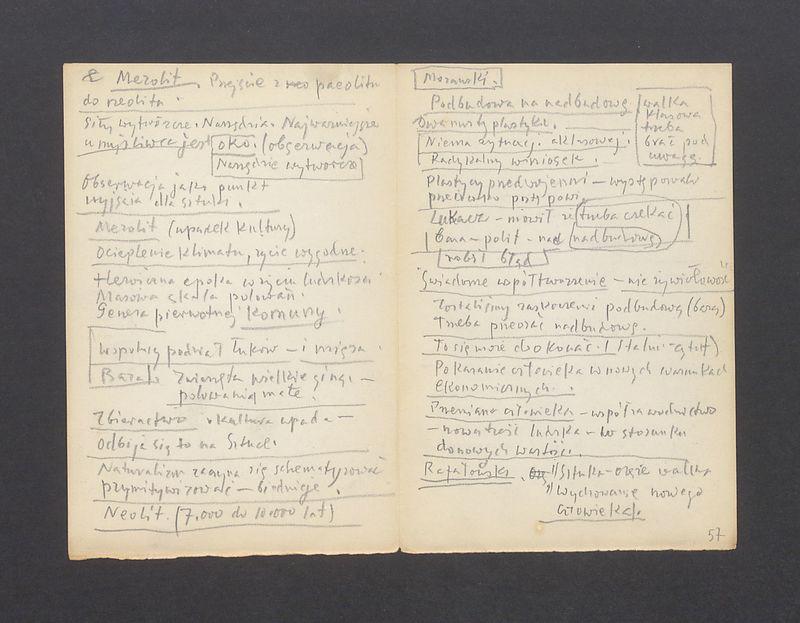 Mezolit. Przejście z paeolitu
do neolitu.
Siły wytwórcze. Narzędzia. Najważniejsze
u myśliwca jest oko. (obserwacja)
Narzędzie wytwórcze
Obserwacja jako punkt
wyjścia dla sztuki.
Mezolit (upadek kultury)
Ocieplenie klimatu, życie wygodne.
Heroiczna epoka w życiu ludzkości
Masowa skala polowań.
Geneza pierwotnej komuny.
Wspólny podział łuków – i mięsa.
Baza. Zwierzęta wielkie giną –
polowania małe.
Zbieractwo. kultura upada –
Odbija się to na sztuce.
Naturalizm zaczyna się schematyzować
prymitywizować – biednieje.
Neolit. (7.000 do 10.000 lat)
Morawski.
Podbudowa na nadbudowę
Dwa nurty plastyki.
Niema sytuacji aklasowej.
Radykalny wniosek.
walka
klasowa
trzeba
brać pod
uwagę.
Plastycy przedwojenni – występowali
przeciwko
Lukacz – mówił że trzeba czekać
baza – polit – nad nadbudową
robił błąd
Świadome współtworzenie – nie żywiołowość
Zostaliśmy zaskoczeni podbudową (bazą)
Trzeba przeorać nadbudowę.
To się może dokonać. (Stalin – cytat)
Pokazanie człowieka w nowych warunkach
ekonomicznych.
Przemiana człowieka – współzawodnictwo
– nowa treść ludzka – w stosunku
do nowych wartości.
Rafałowski. "Sztuka – oręż walki
"Wychowanie nowego
człowieka".
57